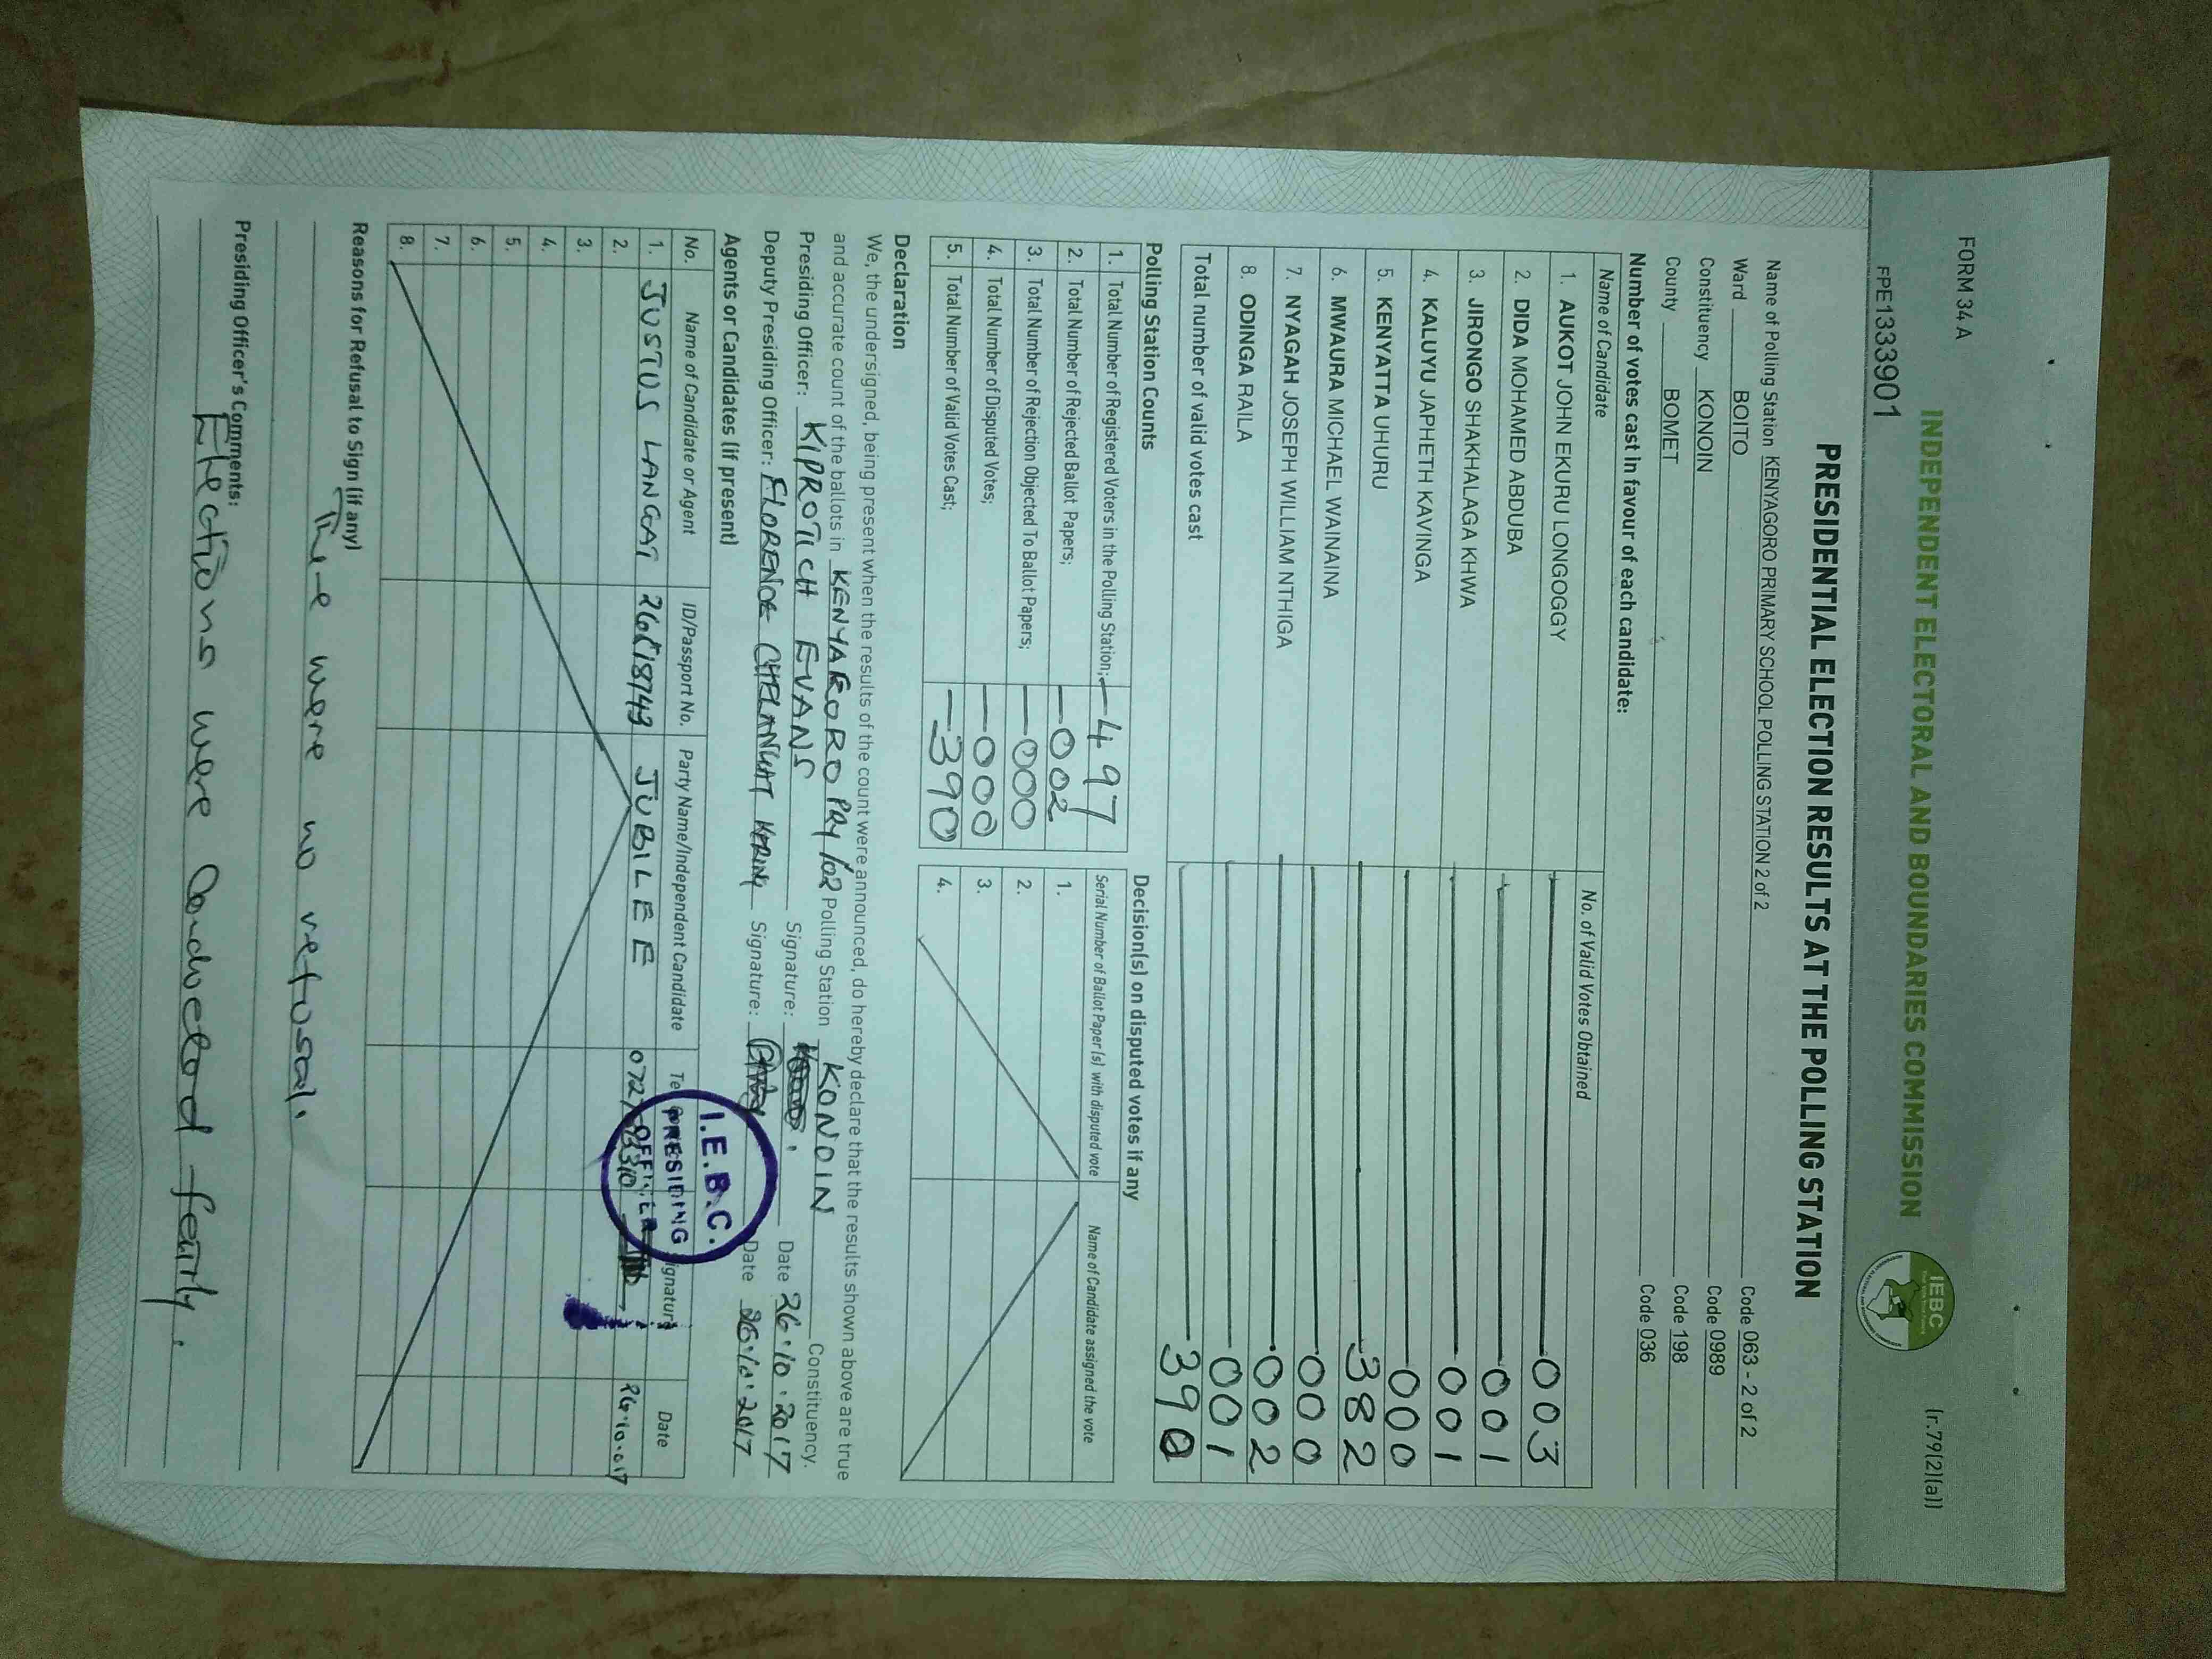 FORM 34 A
(r.79(2)(a))
INDEPENDENT ELECTORAL AND BOUNDARIES COMMISSION
IEBC
FPE1333901
PRESIDENTIAL ELECTION RESULTS AT THE POLLING STATION
Name of Polling Station KENYAGORO PRIMARY SCHOOL POLLING STATION 2 of 2 Code 063 - 2 of 2
Ward BOITO Code 0989
Constituency KONOIN Code 198
County BOMET Code 036
Number of votes cast in favour of each candidate:
Name of Candidate No. of Valid Votes Obtained
1. AUKOT JOHN EKURU LONGOGGY 003
2. DIDA MOHAMED ABDUBA 001
3. JIRONGO SHAKHALAGA KHWA 001
4. KALUYU JAPHETH KAVINGA 000
5. KENYATTA UHURU 382
6. MWAURA MICHAEL WAINAINA 000
7. NYAGAH JOSEPH WILLIAM NTHIGA 002
8. ODINGA RAILA 001
Total number of valid votes cast 390
Polling Station Counts
1. Total Number of Registered Voters in the Polling Station; 497
2. Total Number of Rejected Ballot Papers; 002
3. Total Number of Rejection Objected To Ballot Papers; 000
4. Total Number of Disputed Votes; 000
5. Total Number of Valid Votes Cast; 390
Decision(s) on disputed votes if any
Serial Number of Ballot Paper (s) with disputed vote Name of Candidate assigned the vote
1.
2.
3.
4.
Declaration
We, the undersigned, being present when the results of the count were announced, do hereby declare that the results shown above are true
and accurate count of the ballots in KENYAGORO PRY 102 Polling Station KONOIN Constituency.
Presiding Officer: KIPROTICH EVANS Signature: Date 26.10.2017
Deputy Presiding Officer: FLORENCE Signature: Date 26.10.2017
Agents or Candidates (if present)
No. Name of Candidate or Agent ID/Passport No. Party Name/Independent Candidate Date
1. JUSTUS LANGAT JUBILEE 26.10.017
2.
3.
4.
5.
6.
7.
8.
I.E.B.C.
PRESIDING
OFFICER
Reasons for Refusal to Sign (if any)
There were no refusal.
Presiding Officer's Comments:
Elections were Conducted fairly.